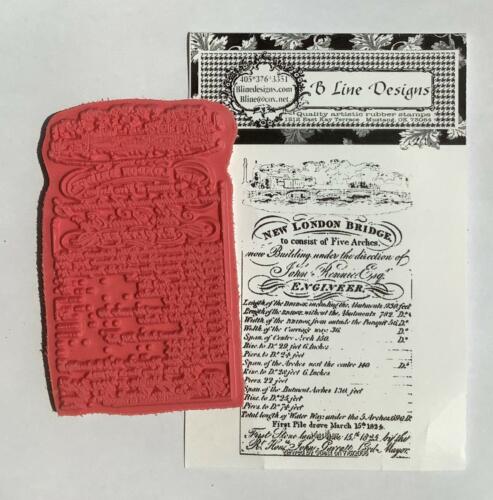 405*376*3351
Blinedesigns.com
Bline@cox.net
B Line Designs
Quality artistic rubber stamps
Kay Terrace Mustang, OK 73064
NEW LONDON BRIDGE,
to consist of Five Arches,
now Building under the direction of
John Rennie Esqr
ENGINEER,
Length of the BRIDGE including the Abutments 950 feet
Length of the BRIDGE without the Abutments 782 Do
Width of the BRIDGE from outside the Parapit 56 Do
Width of the Carriage way 36 Do
Span of Centre Arch 150. Do
Rise to Do 29 feet 6 Inches
Piers to Do 24 feet
Span of the Arches next the centre 140 Do
Rise to Do 26 feet 6 Inches
Piers 22 feet
Span of the Butment Arches 130 feet
Rise to Do 25 feet
Piers to Do 74 feet
Total length of Water Way: under the 5 Arches 690 D
First Pile drove March 15th 1824.
First Stone laid 15th 1825 by the
Rt Honl John Garratt Lord Mayor.